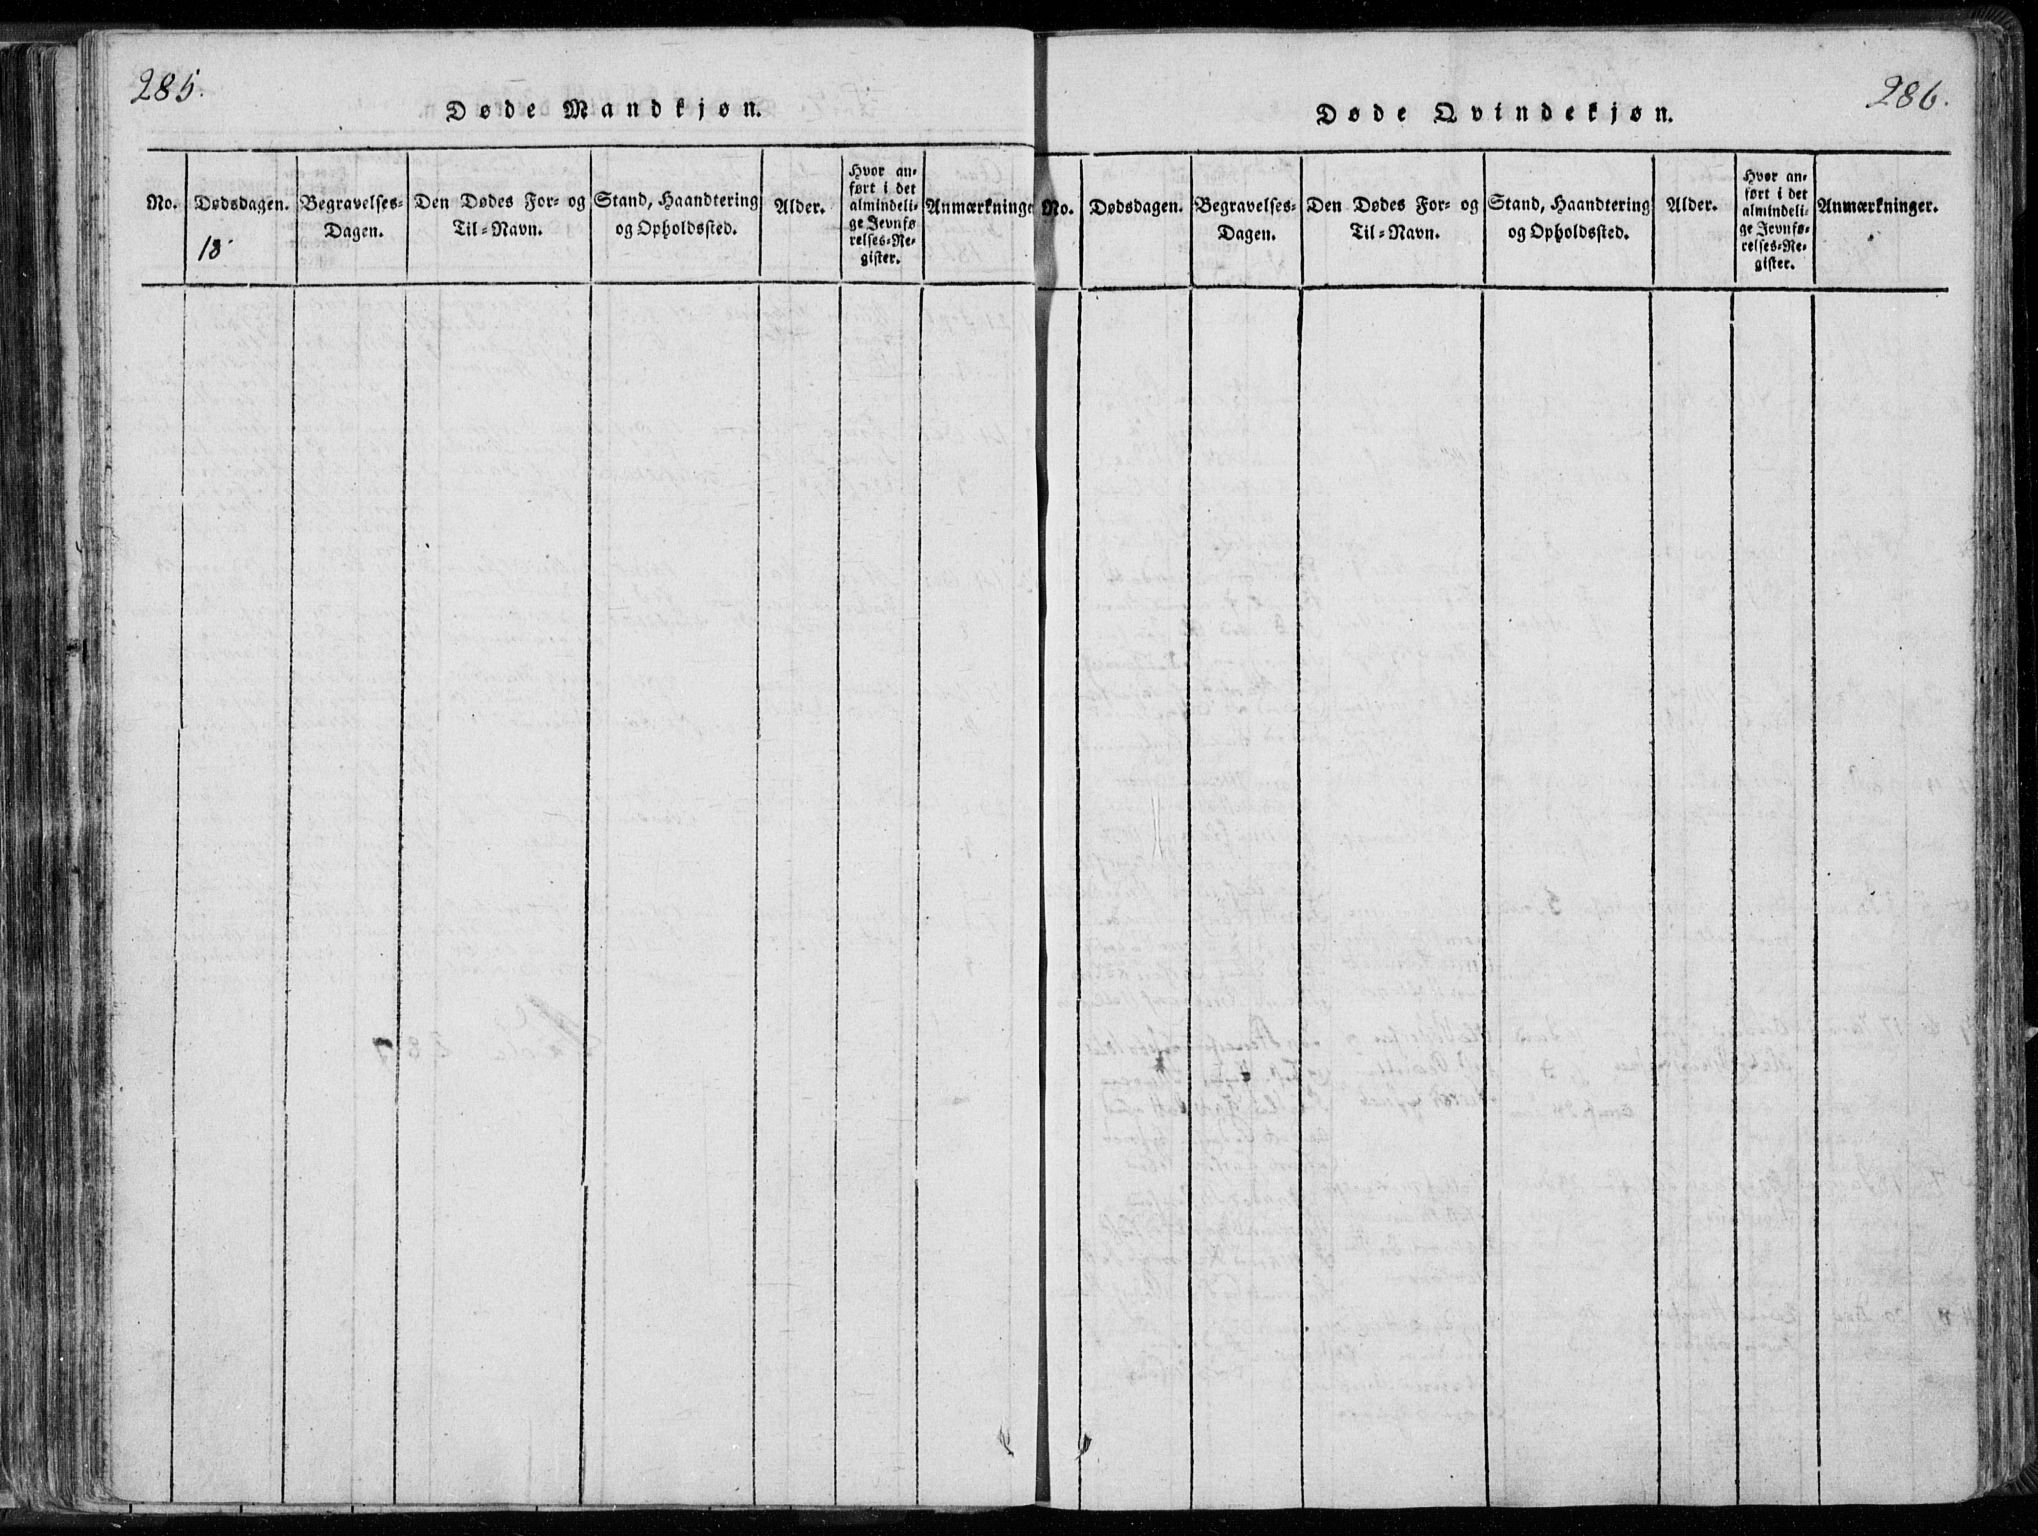 285.
Døde Mandkjøn.
No.
Dødsdagen.
18
Begravelses-
Dagen.
Den Dødes For- og
Til-Navn.
Stand, Haandtering
og Opholdssted.
Alder.
Hvor an-
ført i det
almindeli-
ge Jevnfø
relses-Re-
gister.
Anmærkninge
286.
Døde Qvindekjøn.
No.
Dødsdagen.
Begravelses-
Dagen.
Den Dødes For- og
Til-Navn.
Stand, Haandtering
og Opholdssted.
Alder.
Hvor an-
ført i det
almindeli-
ge Jevnfø-
relses-Re-
gister.
Anmærkninger.